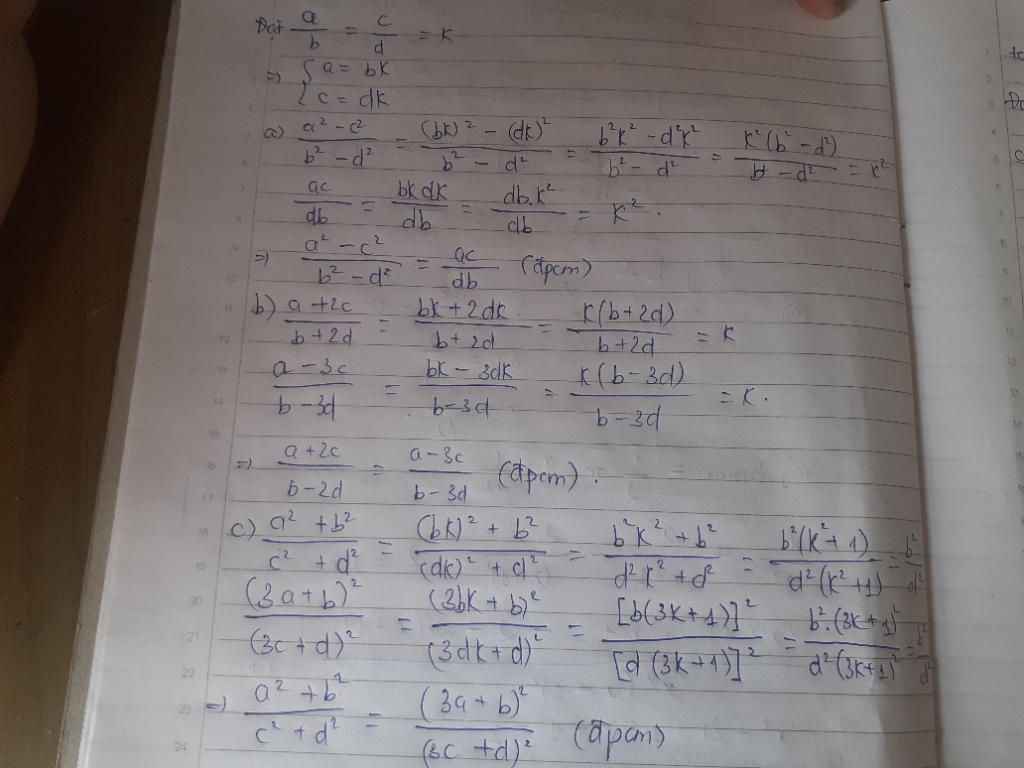 Đặt a/b = c/d = k
=> { a = bk
{ c = dk
a) (a² - c²)/(b² - d²) = ((bk)² - (dk)²)/(b² - d²) = (b²k² - d²k²)/(b² - d²) = (k²(b² - d²))/(b - d²) = k²
ac/db = bkdk/db = db.k²/db = k².
=> (a² - c²)/(b² - d²) = ac/db (đpcm)
b) (a + 2c)/(b + 2d) = (bk + 2dk)/(b + 2d) = k(b + 2d)/(b + 2d) = k
(a - 3c)/(b - 3d) = (bk - 3dk)/(b - 3d) = k(b - 3d)/(b - 3d) = k.
=> (a + 2c)/(b - 2d) = (a - 3c)/(b - 3d) (đpcm).
c) (a² + b²)/(c² + d²) = ((bk)² + b²)/((dk)² + d²) = (b²k² + b²)/(d²k² + d²) = b²(k² + 1)/d²(k² + 1) = b²/d²
(3a + b)²/(3c + d)² = (3bk + b)²/(3dk + d)² = [b(3k + 1)]²/[d(3k + 1)]² = b².(3k + 1)²/d²(3k + 1)² = b²/d²
=> (a² + b²)/(c² + d²) = (3a + b)²/(3c + d)² (đpcm)